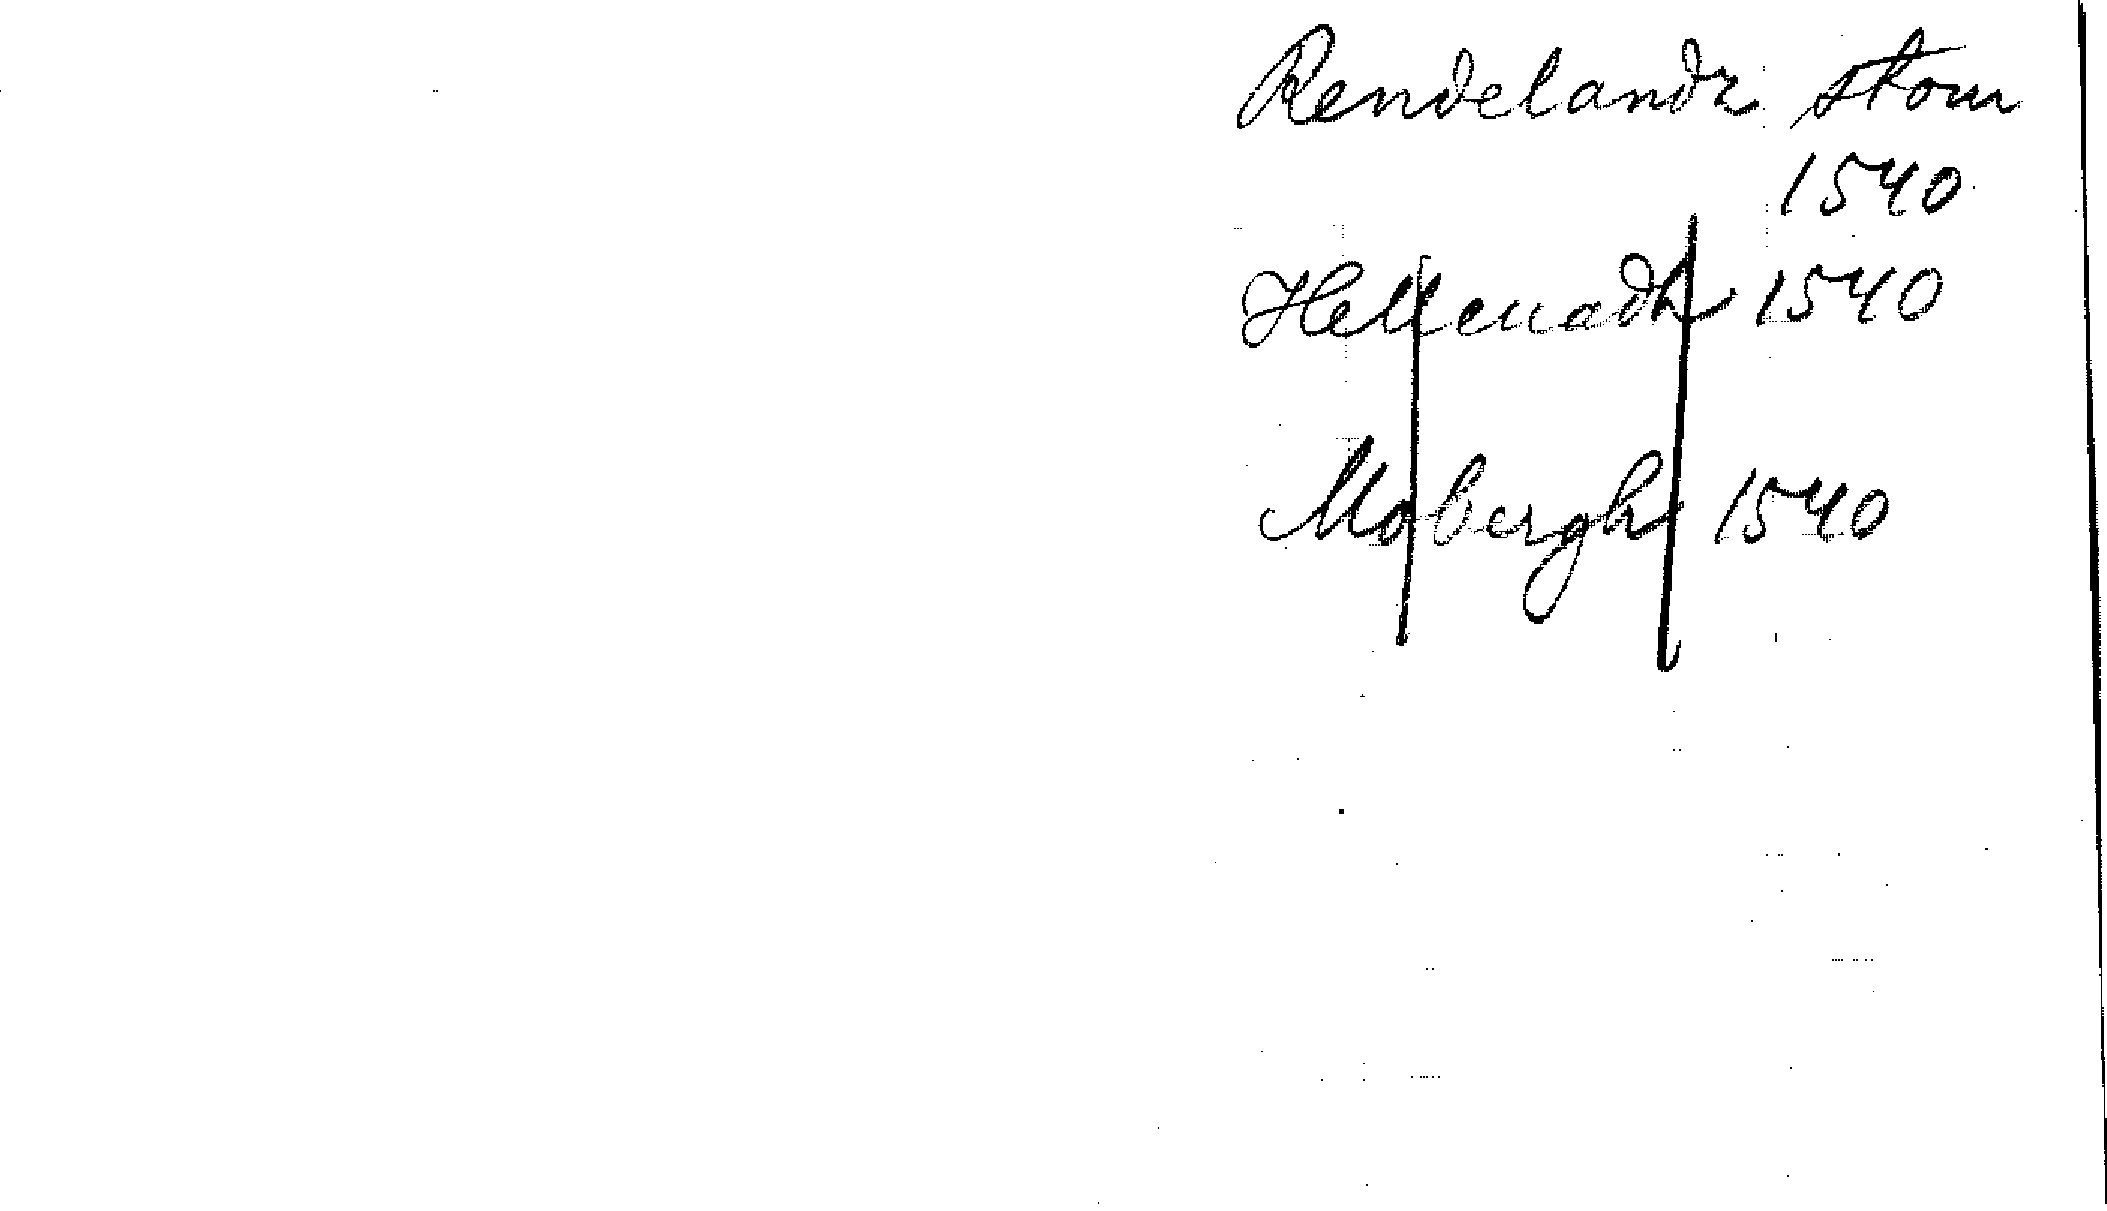 Rendelandz stom
1540
Hellenadh 1540
Mobergh 1540